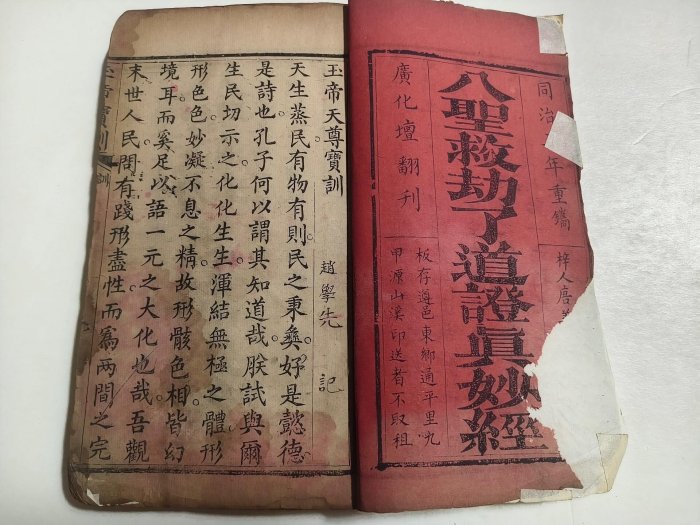 同治
年重鐫
梓人
八聖救劫了道證真妙經
廣化壇翻刊
板存遵邑東鄉通平里九
甲源山溪印送者不取租
玉帝天尊寶訓
趙學先 記
天生蒸民有物有則民之秉彝好是懿德
是詩也孔子何以謂其知道哉朕試與爾
生民切示之化化生生渾結無極之體形
形色色妙凝不息之精故形骸色相皆幻
境耳而奚足以語一元之大化也哉吾觀
末世人民問有踐形盡性而為兩間之完
帝寶訓
訓